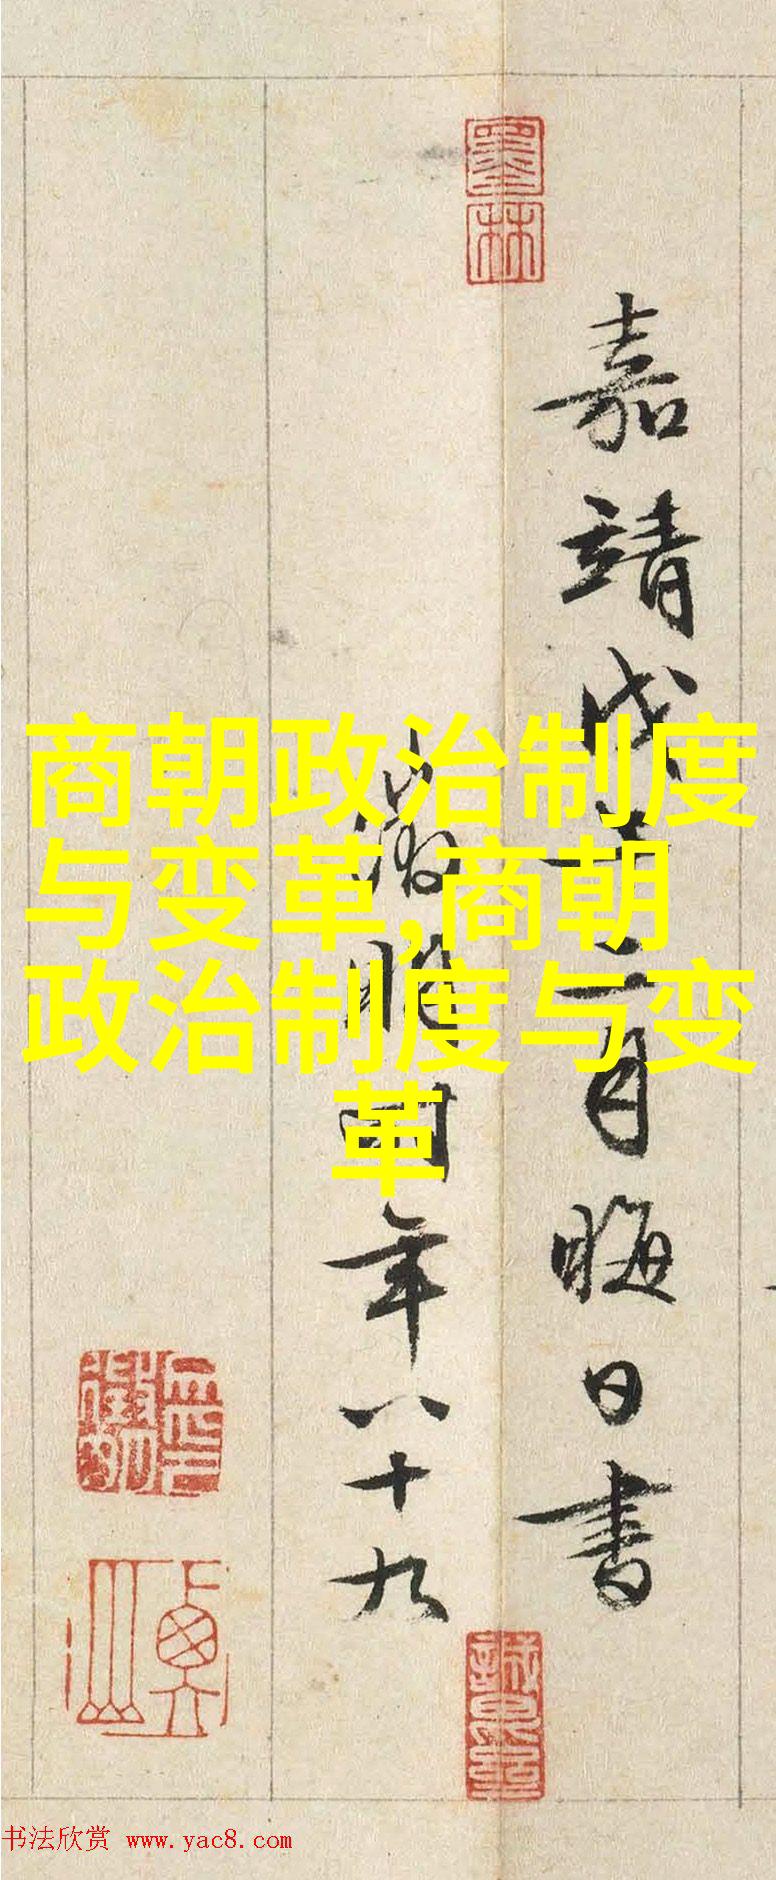 嘉靖戊午二月晦日書
徵明時年八十九
墨林
商朝政治制度
与变革,商朝
政治制度与变
革
书法欣赏 www.yac8.com